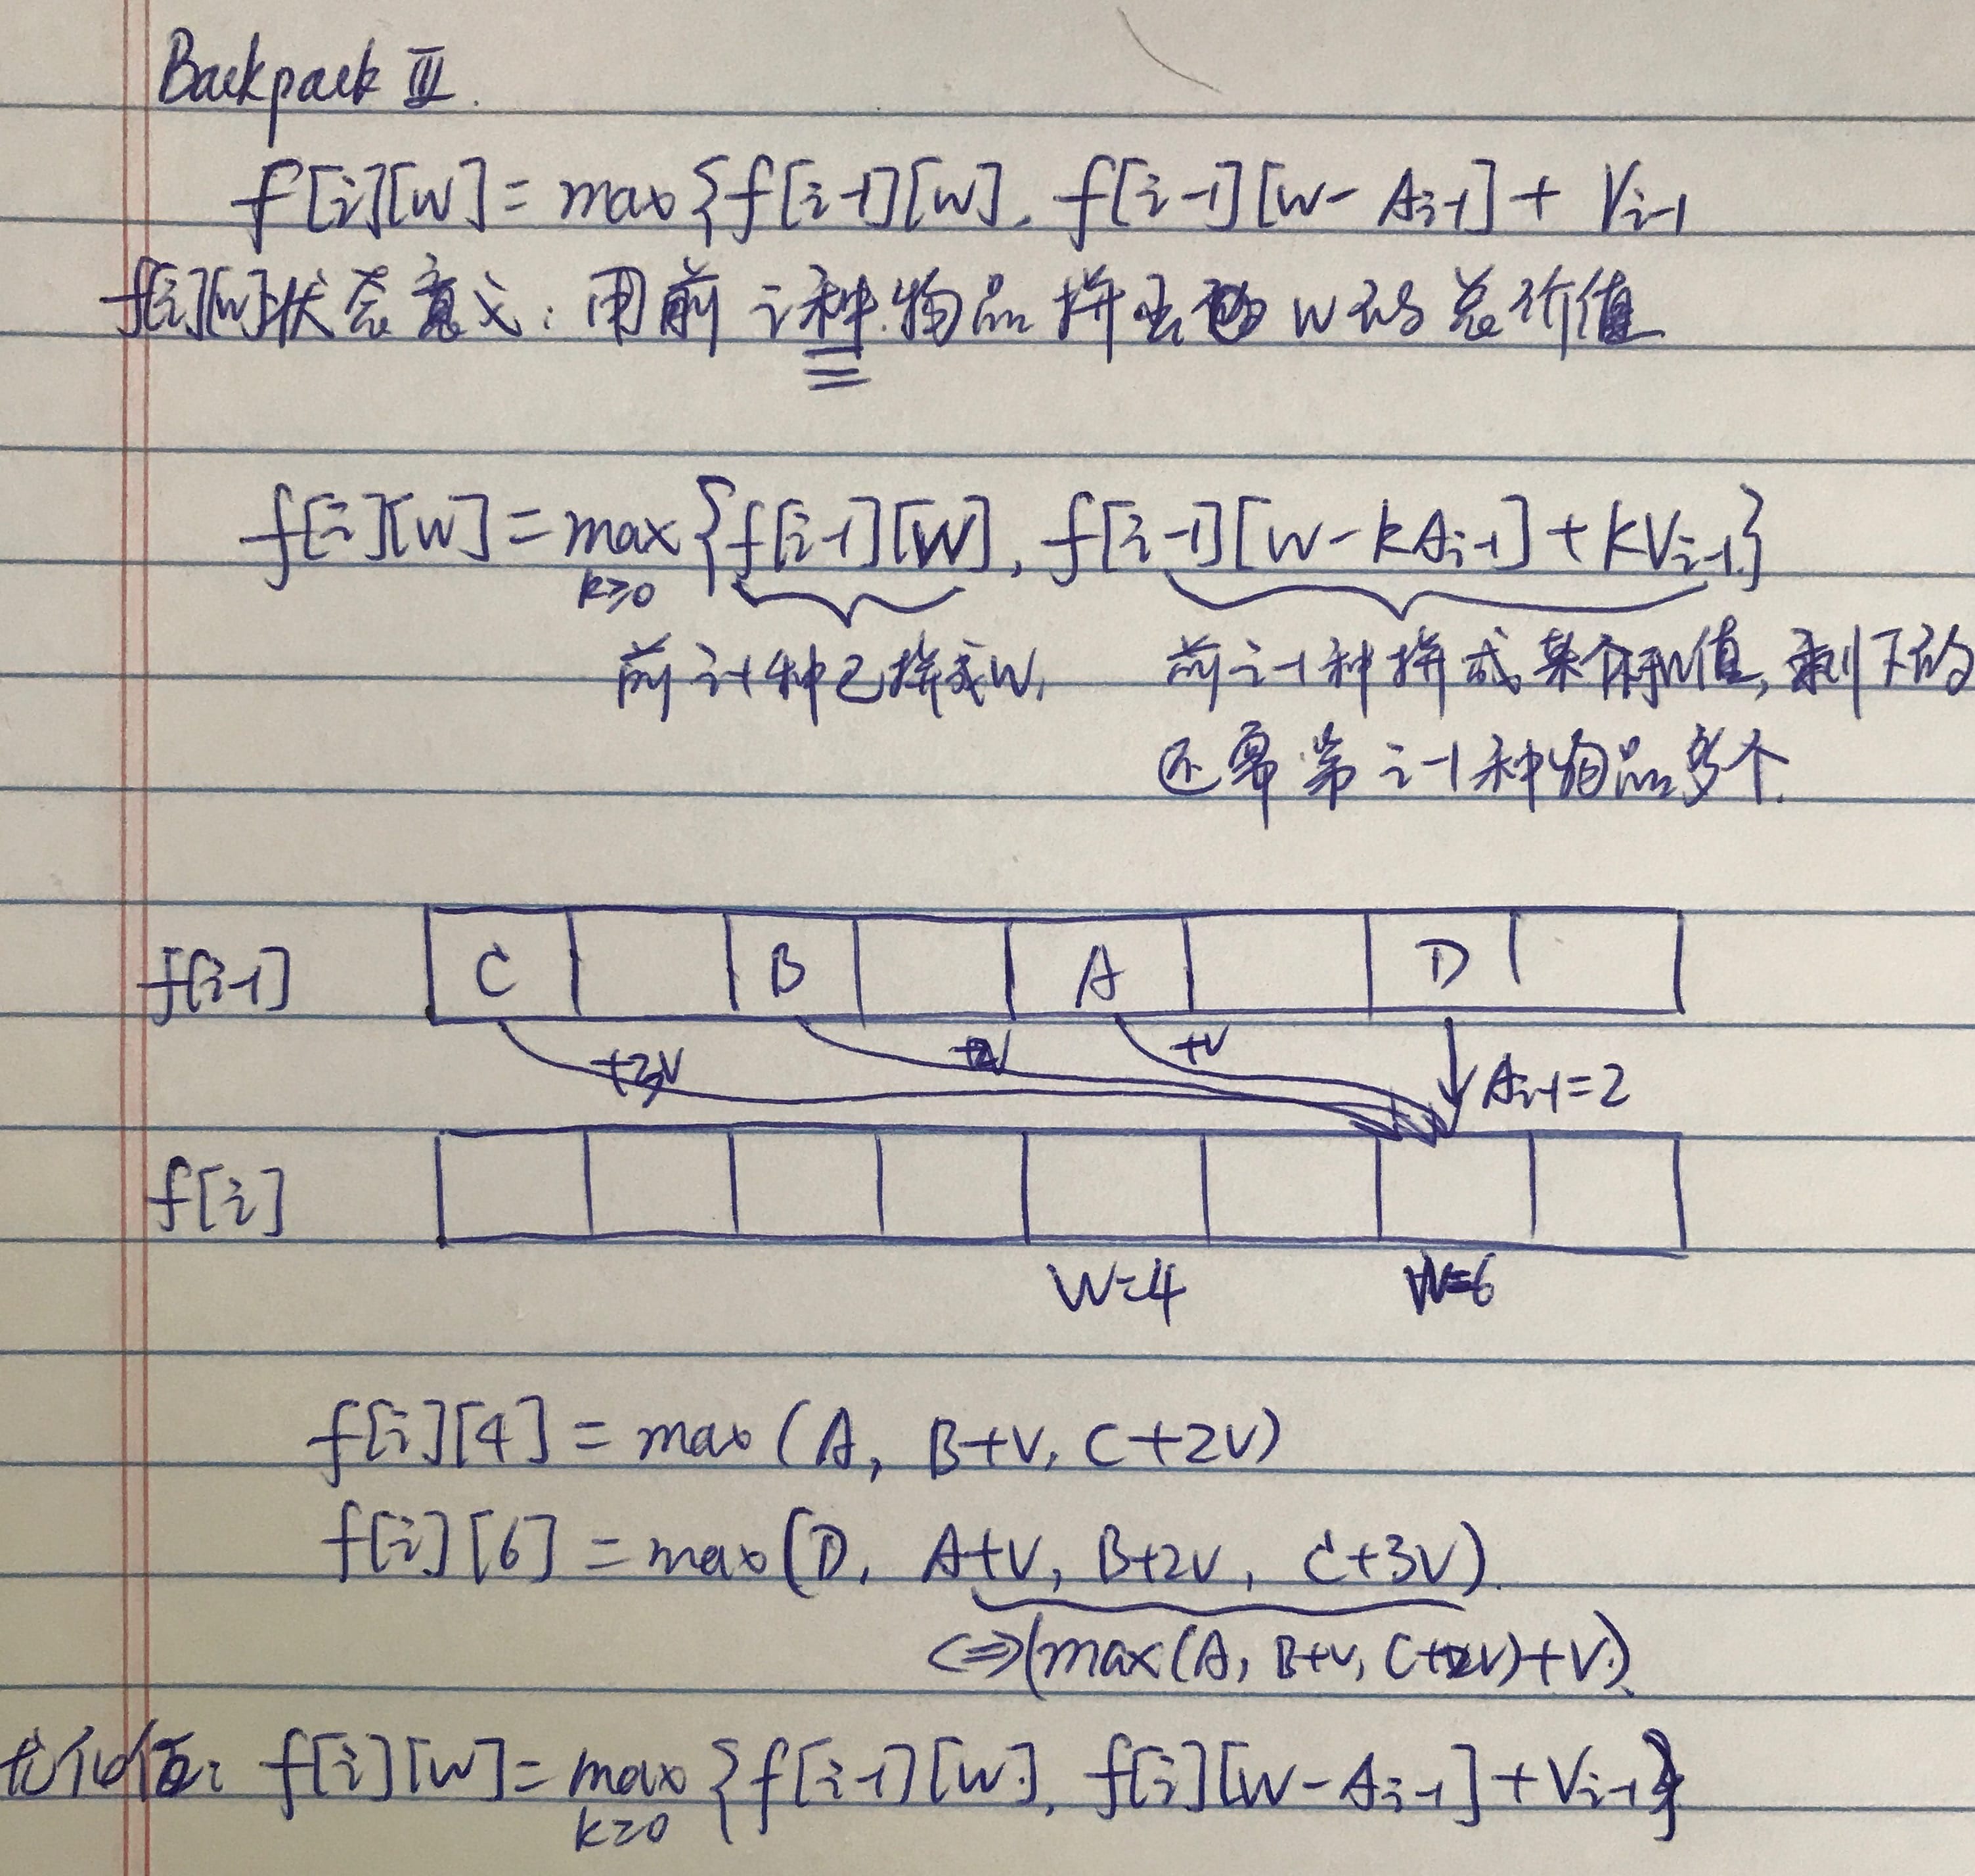 Backpack III.
f[i][w] = max{f[i-1][w], f[i-1][w-A_{i-1}] + V_{i-1}
f[i][w]状态意义: 用前i种物品拼出 w 的总价值
f[i][w] = max{f[i-1][w], f[i-1][w-kA_{i-1}] + kV_{i-1}}
k≥0
前i-1种已拼成W, 前i-1种拼成某个 W值, 剩下的
还要第i-1种物品多个.
f[i-1] C B A D
+3V +2V +V A_{i-1}=2
f[i]
W=4 W=6
f[i][4] = max(A, B+V, C+2V)
f[i][6] = max(D, A+V, B+2V, C+3V).
<=>(max(A, B+V, C+2V)+V.)
优化 : f[i][w] = max{f[i-1][w], f[i][w-A_{i-1}] + V_{i-1}}
k≥0